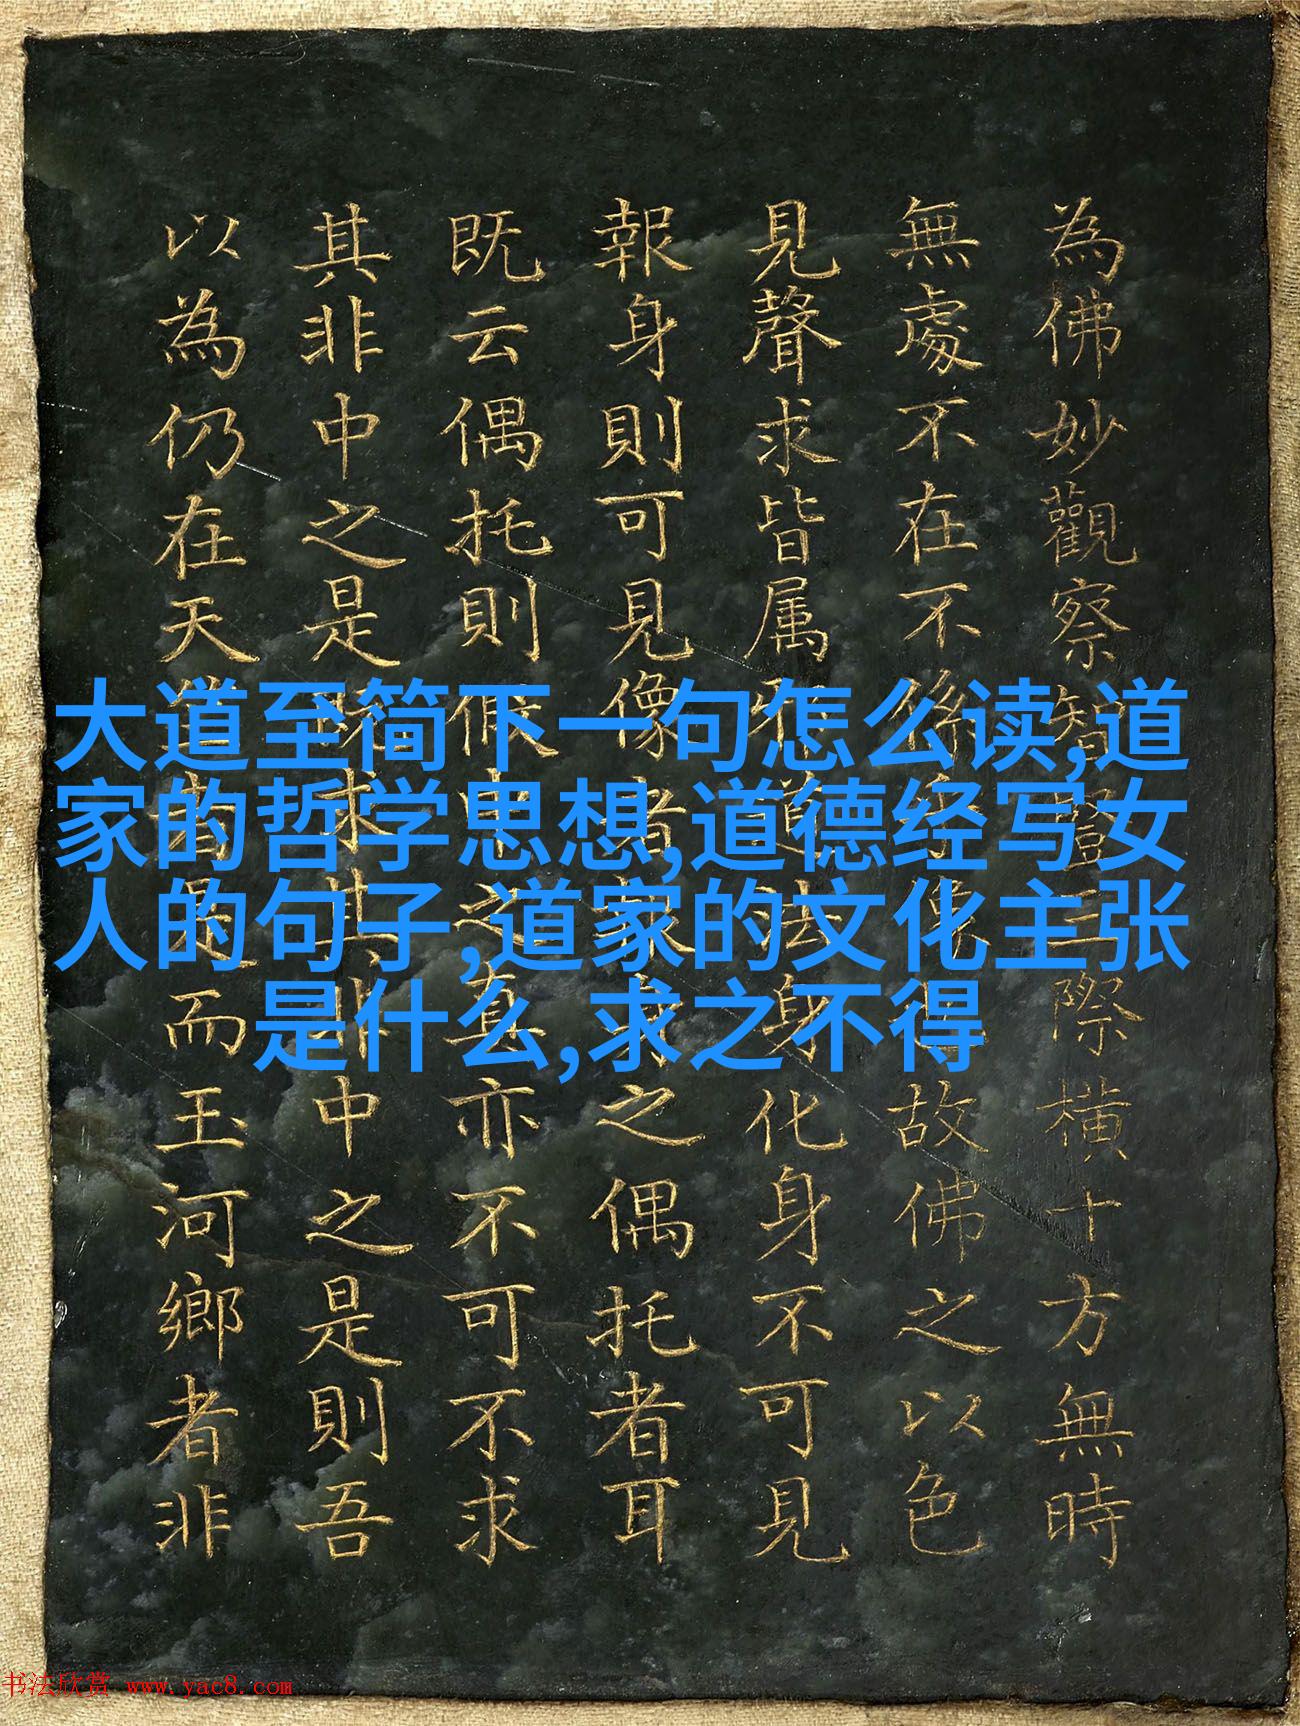 為佛妙觀察智證三際橫十方無時
無處不在不係故佛之以色
見聲求皆属法身化身不可見
報身則可見像者求之偶托者耳
既云偶托則假中之真亦不可不求
其非中之是求其非中之是則吾
以為仍在天道而玉河鄉者非
大道至简下一句怎么读,道
家的哲学思想,道德经写女
人的句子,道家的文化主张
是什么,求之不得
书法欣赏 www.yac8.com